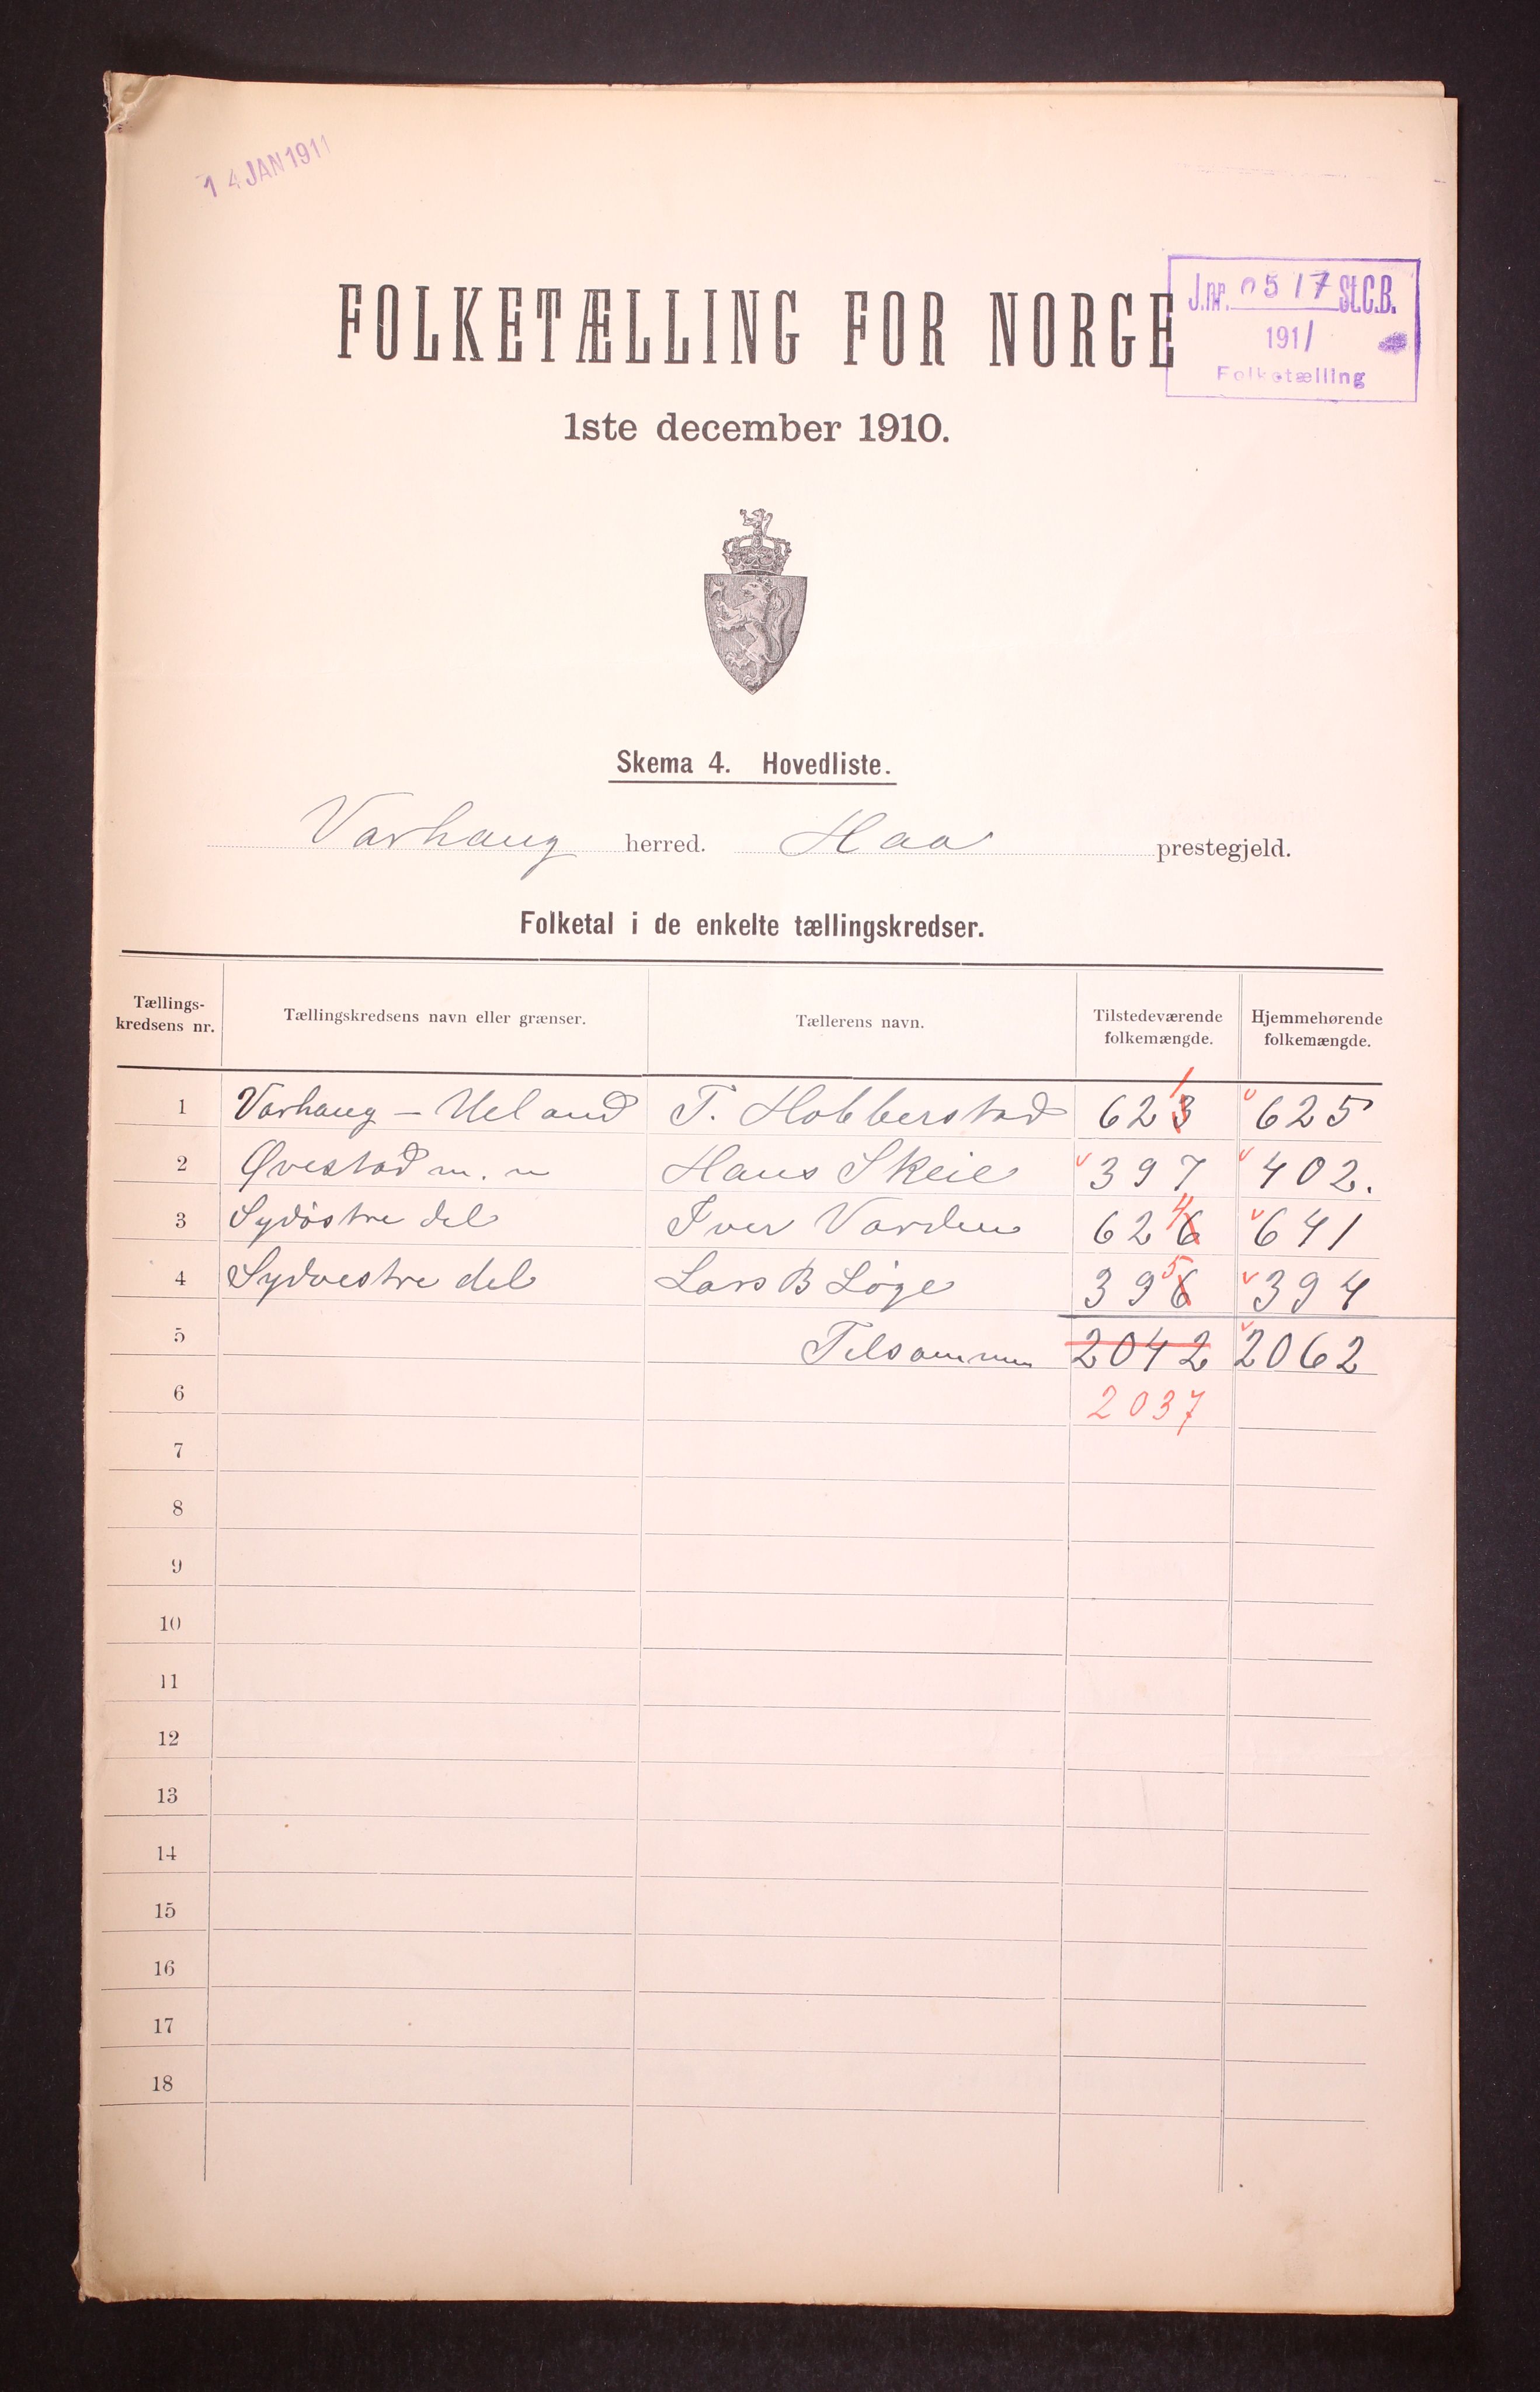 14 JAN 1911
J.nr. 0517 St.C.B.
1911
Folketælling
FOLKETÆLLING FOR NORGE
1ste december 1910.
Skema 4. Hovedliste.
Varhaug herred. Haa prestegjeld.
Folketal i de enkelte tællingskredser.
Tællings-kredsens nr. Tællingskredsens navn eller grænser. Tællerens navn. Tilstedeværende folkemængde. Hjemmehørende folkemængde.
1 Varhaug – Ueland T. Hobberstad 623 1 625
2 Øvestad m. m Hans Skeie 397 402.
3 Sydöstre del Iver Varden 626 4 641
4 Sydvestre del Lars B Løge 396 5 394
5 Tilsammen 2042 2062
6 2037
7
8
9
10
11
12
13
14
15
16
17
18